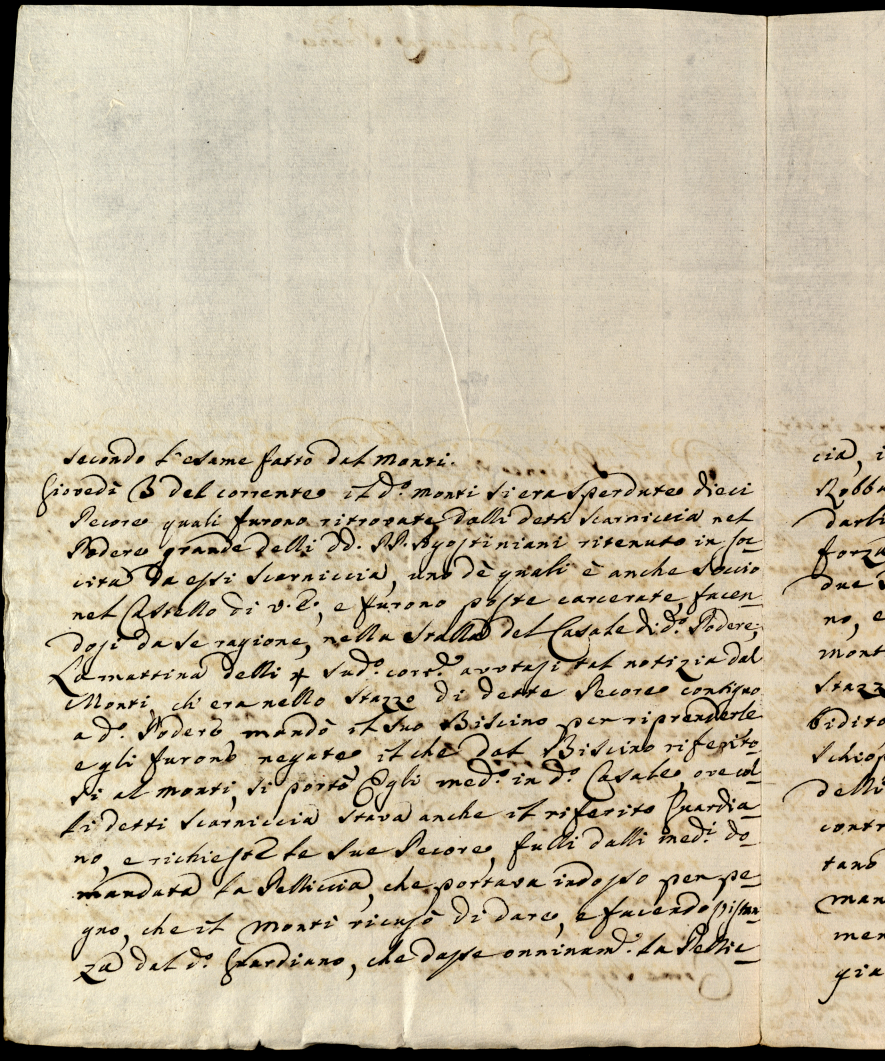 secondo l'esame fatto dal Monti.
Giovedì 3 del corrente il d.° Monti si era sperdute dieci
Pecore quali furono ritrovate dalli detti Scarniccia nel
Podere grande delli dd. PP. Agostiniani ritenuto in so=
cità da essi Scarniccia, uno dè quali è anche Soccio
nel Castello di V. E., e furono poste carcerate, facen=
dosi da se ragione, nella Stalla del Casale di d.° Podere;
La mattina delli 4 sud.° corr.e avutasi tal notizia dal
Monti, ch'era nello Stazzo di dette Pecore contiguo
a d.° Podere mandò il suo Biscino per riprenderle
e gli furono negate, il che dal Biscino riferito=
si al Monti, si portò Egli med.° in d.° Casale, ove col=
li detti Scarniccia stava anche il riferito Guardia=
no, e richieste le sue Pecore, fulli dalli med.i do=
mandata la Pelliccia, che portava indosso per pe=
gno, che il Monti ricusò di dare, e facendosi istan=
za dal d.° Guardiano, che dasse onninam.e la Pellic=
cia, i
Robba
darli
forza
due
no, e
mont
Stazz
bidito
Schiop
delli
contr
tano
man
men
gia